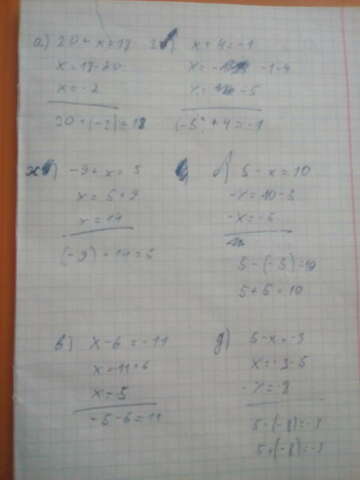 а) 20 + x = 18
x = 18 - 20
x = -2
20 + (-2) = 18
x + 4 = -1
x = -1 - 4
x = -5
(-5) + 4 = -1
ж) -9 + x = 5
x = 5 + 9
x = 14
(-9) + 14 = 5
б) 5 - x = 10
-x = 10 - 5
-x = -5
5 - (-5) = 10
5 + 5 = 10
в) x - 6 = -11
x = -11 + 6
x = 5
-5 - 6 = 11
д) 5 - x = -3
x = -3 - 5
-x = 8
5 + (-8) = -3
5 + (-8) = -3